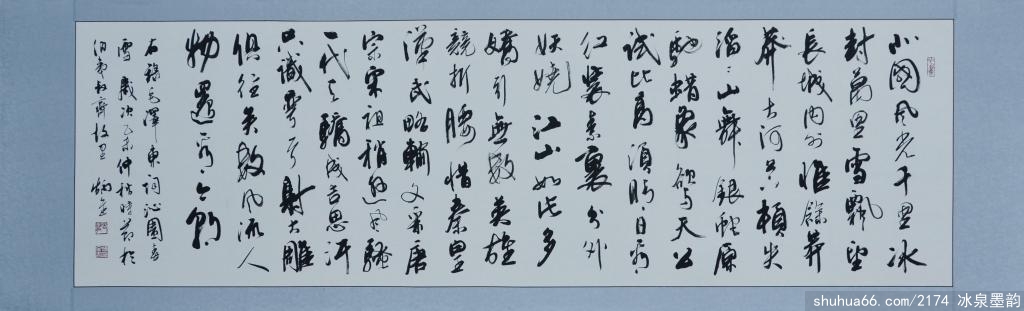 北國風光千里冰
封萬里雪飄望
長城內外惟餘莽
莽大河上下頓失
滔滔山舞銀蛇原
馳蠟象欲與天公
試比高須晴日看
紅裝素裹分外
妖嬈江山如此多
嬌引無數英雄
競折腰惜秦皇
漢武略輸文采唐
宗宋祖稍遜風騷
一代天驕成吉思汗
只識彎弓射大雕
俱往矣數風流人
物還看今朝
右錄毛澤東詞沁園春
雪歲次乙未仲秋時節於
伯夷叔齊故里
shuhua66.com/2174 冰泉墨韵